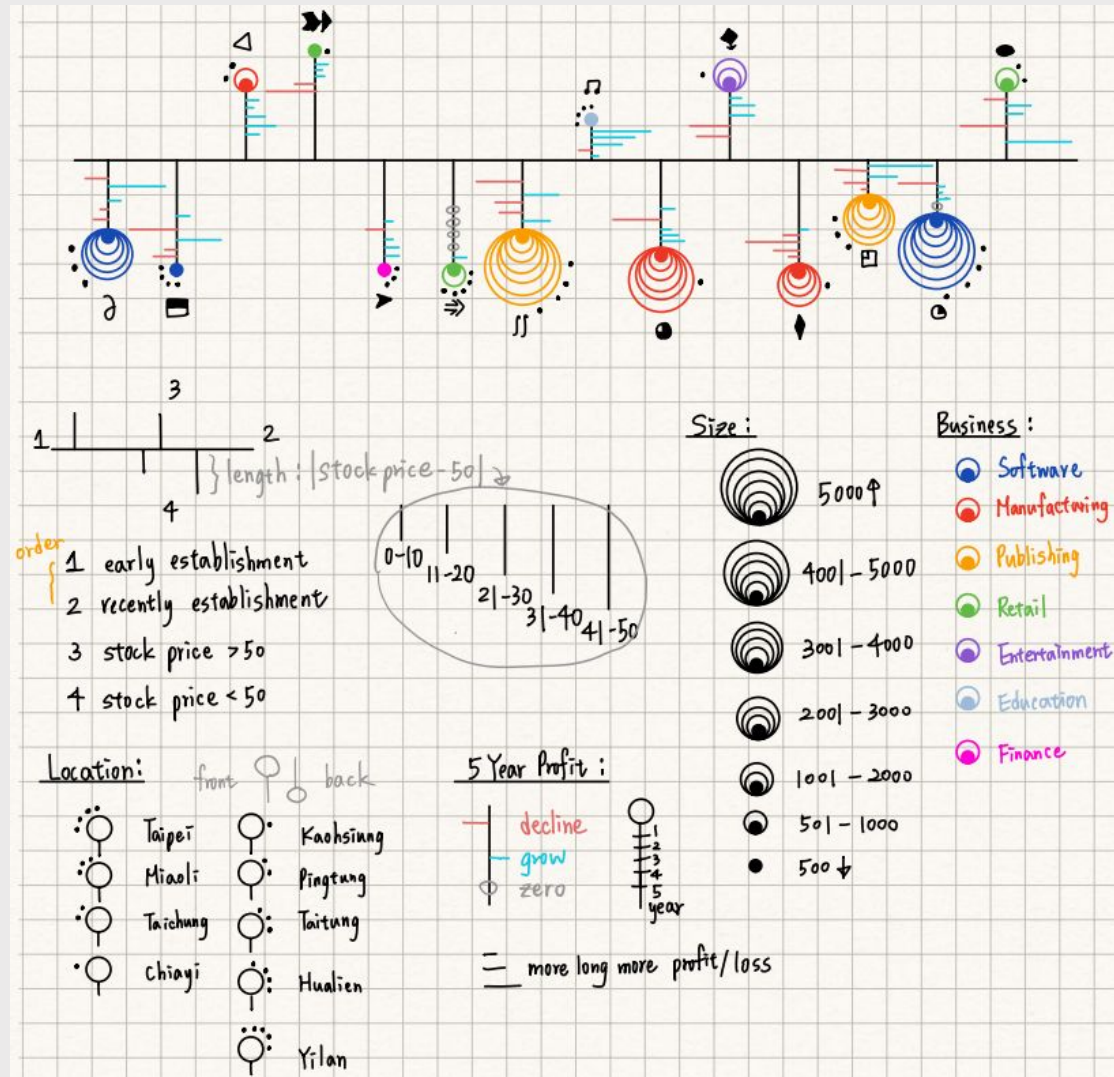 3
1
2
} length : |stock price - 50|
4
0-10
11-20
21-30
31-40
41-50
order
1 early establishment
2 recently establishment
3 stock price > 50
4 stock price < 50
Size :
5000↑
4001 - 5000
3001 - 4000
2001 - 3000
1001 - 2000
501 - 1000
500 ↓
Business :
Software
Manufacturing
Publishing
Retail
Entertainment
Education
Finance
Location:
front
back
Taipei
Miaoli
Taichung
Chiayi
Kaohsiung
Pingtung
Taitung
Hualien
Yilan
5 Year Profit :
decline
grow
zero
1
2
3
4
5
year
more long more profit/loss